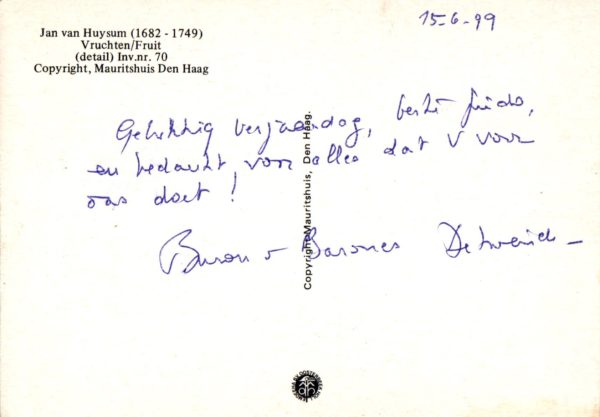 Jan van Huysum (1682 - 1749)
Vruchten/Fruit
(detail) Inv.nr. 70
Copyright, Mauritshuis Den Haag
15-6-99
Gelukkig verjaardag, beste
en bedankt, voor alles dat U voor
ons doet!
Baron v Barones
Copyright Mauritshuis, Den Haag.